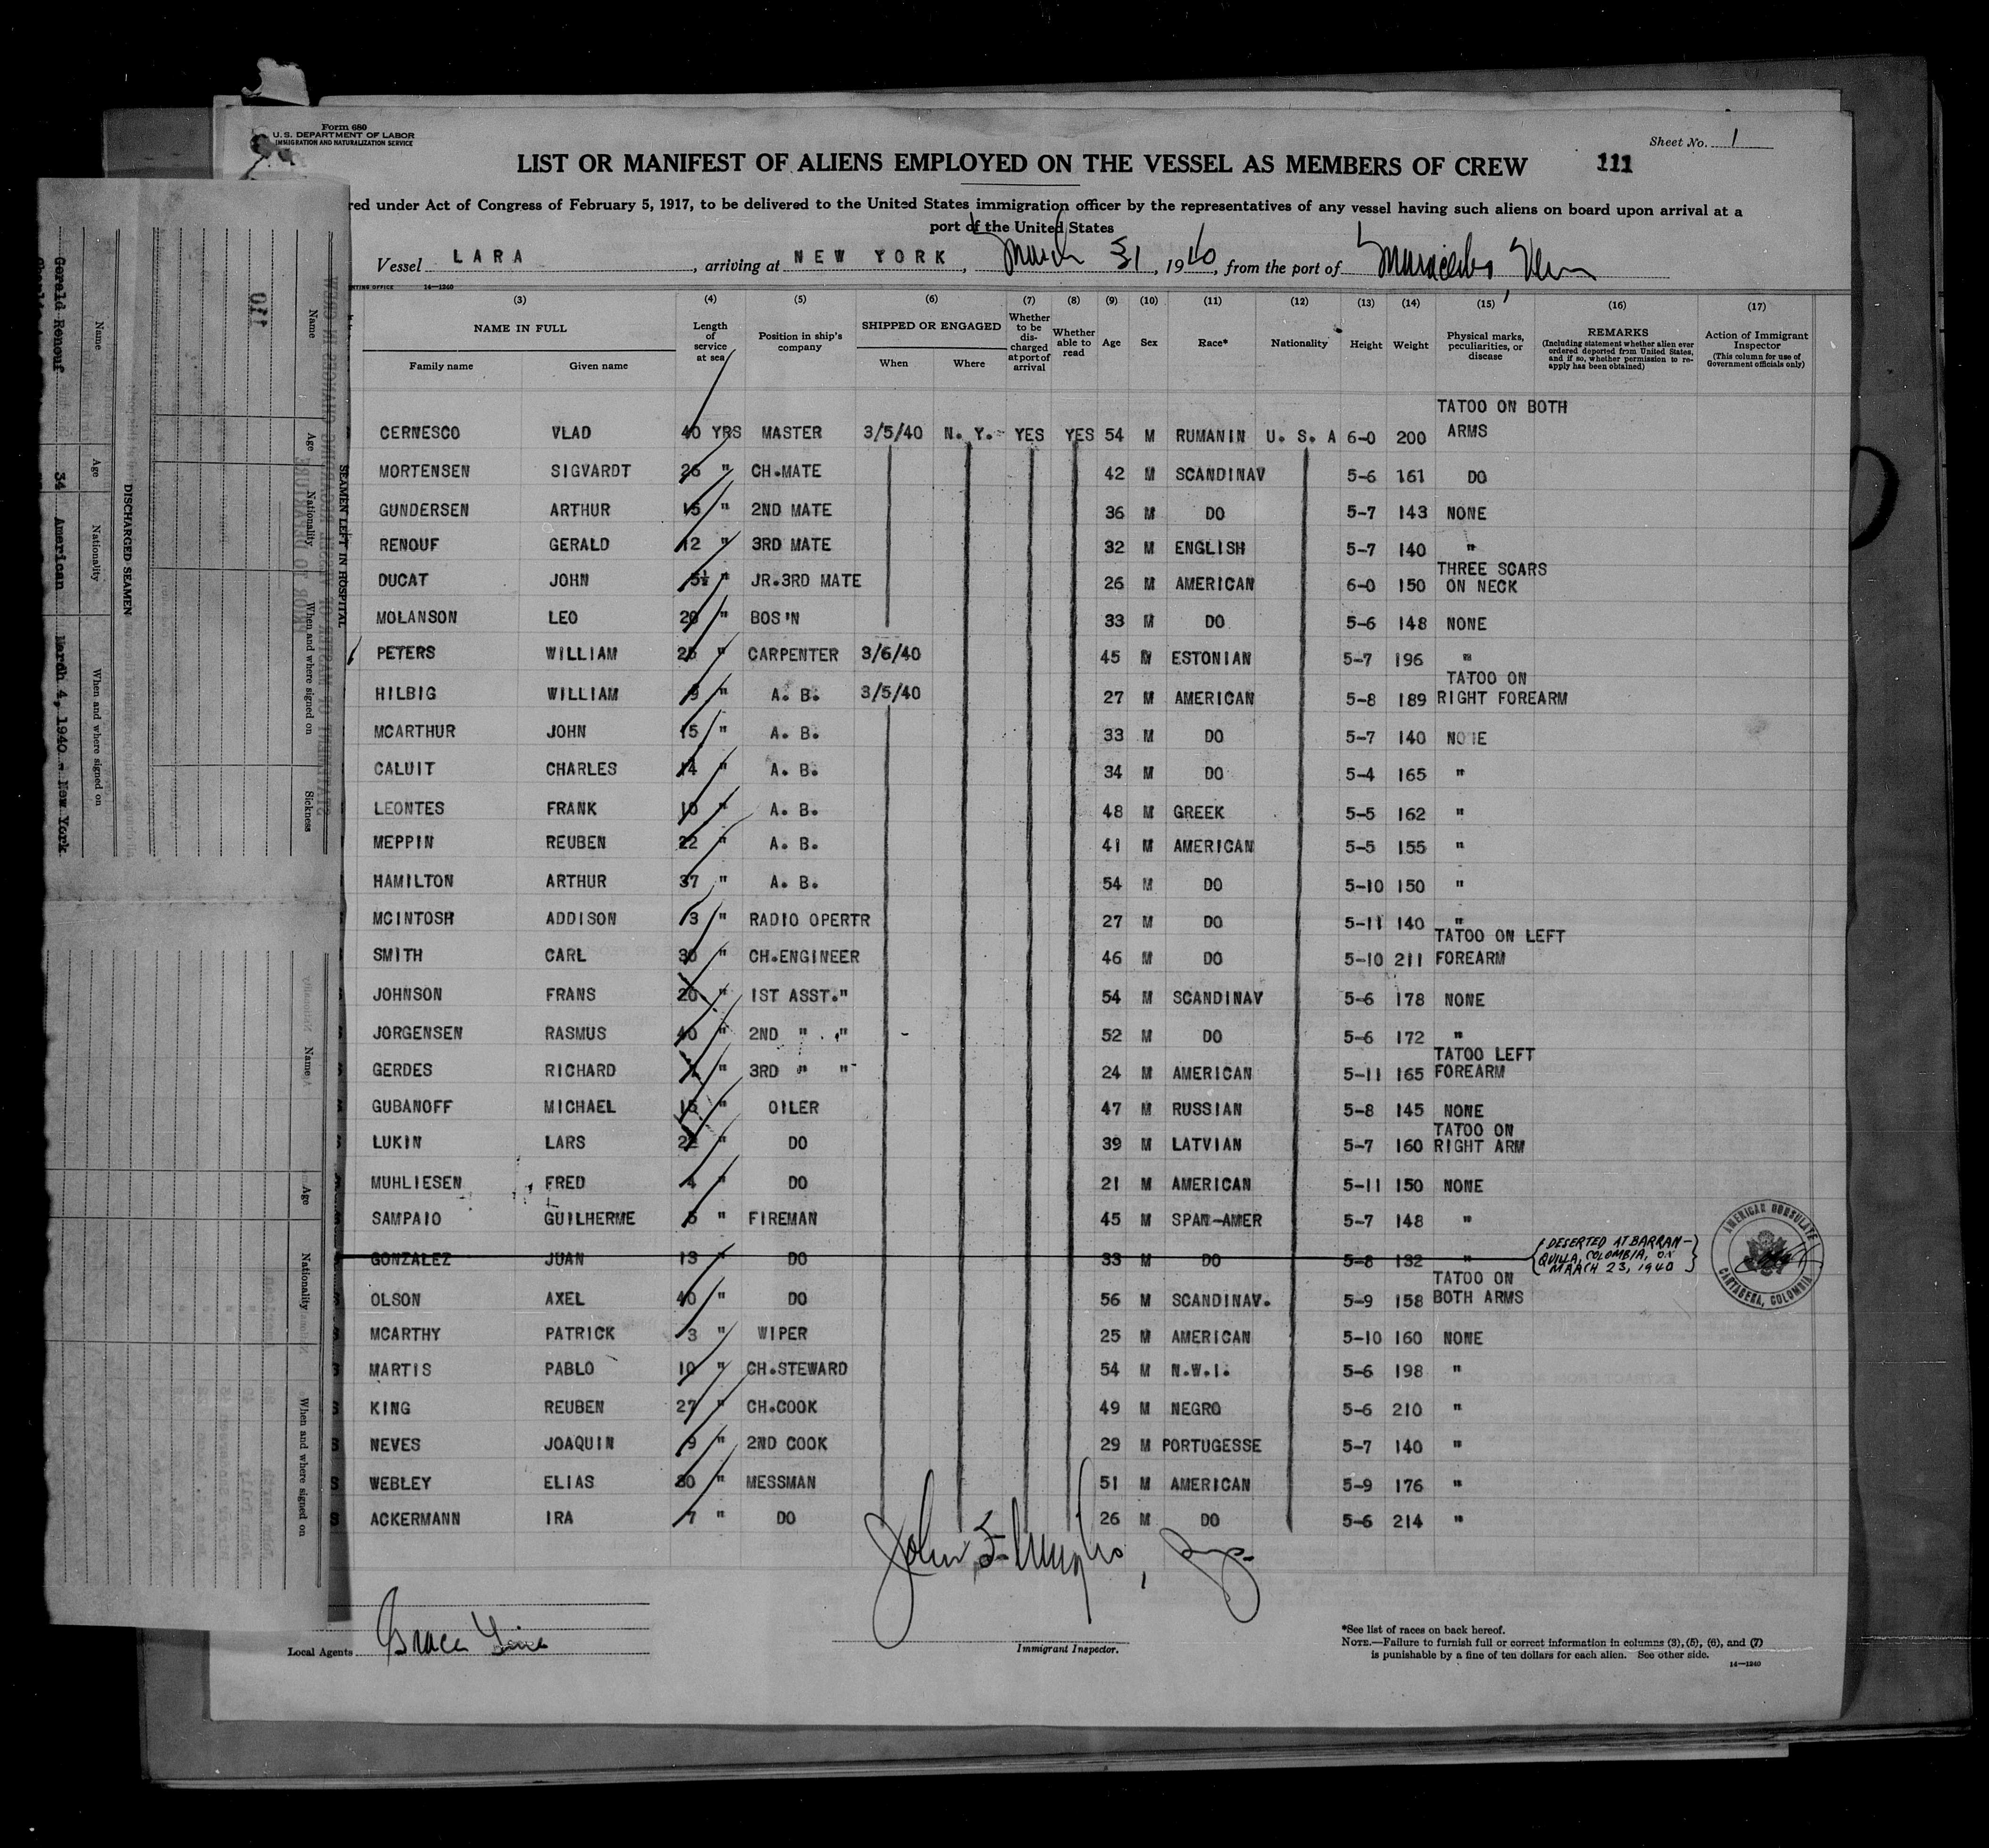 Form 680
U.S. DEPARTMENT OF LABOR
IMMIGRATION AND NATURALIZATION SERVICE
Sheet No. 1
LIST OR MANIFEST OF ALIENS EMPLOYED ON THE VESSEL AS MEMBERS OF CREW 111
red under Act of Congress of February 5, 1917, to be delivered to the United States immigration officer by the representatives of any vessel having such aliens on board upon arrival at a
port of the United States
Vessel LARA, arriving at NEW YORK, March 31, 1940, from the port of Maracaibo, Ven
(3) (4) (5) (6) (7) (8) (9) (10) (11) (12) (13) (14) (15) (16) (17)
NAME IN FULL Length of service at sea Position in ship's company SHIPPED OR ENGAGED Whether to be discharged at port of arrival Whether able to read Age Sex Race* Nationality Height Weight Physical marks, peculiarities, or disease REMARKS (Including statement whether alien ever ordered deported from United States, and if so, whether permission to re-apply has been obtained) Action of Immigrant Inspector (This column for use of Government officials only)
Family name Given name When Where
CERNESCO VLAD 40 YRS MASTER 3/5/40 N. Y. YES YES 54 M RUMANIN U. S. A 6-0 200 TATOO ON BOTH ARMS
MORTENSEN SIGVARDT 26 " CH.MATE 42 M SCANDINAV 5-6 161 DO
GUNDERSEN ARTHUR 15 " 2ND MATE 36 M DO 5-7 143 NONE
RENOUF GERALD 12 " 3RD MATE 32 M ENGLISH 5-7 140 "
DUCAT JOHN 5½ " JR.3RD MATE 26 M AMERICAN 6-0 150 THREE SCARS ON NECK
MOLANSON LEO 20 " BOS'N 33 M DO 5-6 148 NONE
PETERS WILLIAM 25 " CARPENTER 3/6/40 45 M ESTONIAN 5-7 196 "
HILBIG WILLIAM 9 " A. B. 3/5/40 27 M AMERICAN 5-8 189 TATOO ON RIGHT FOREARM
MCARTHUR JOHN 15 " A. B. 33 M DO 5-7 140 NONE
CALUIT CHARLES 14 " A. B. 34 M DO 5-4 165 "
LEONTES FRANK 10 " A. B. 48 M GREEK 5-5 162 "
MEPPIN REUBEN 22 " A. B. 41 M AMERICAN 5-5 155 "
HAMILTON ARTHUR 37 " A. B. 54 M DO 5-10 150 "
MCINTOSH ADDISON 3 " RADIO OPERTR 27 M DO 5-11 140 "
SMITH CARL 30 " CH.ENGINEER 46 M DO 5-10 211 TATOO ON LEFT FOREARM
JOHNSON FRANS 20 " 1ST ASST." 54 M SCANDINAV 5-6 178 NONE
JORGENSEN RASMUS 40 " 2ND " " 52 M DO 5-6 172 "
GERDES RICHARD " 3RD " " 24 M AMERICAN 5-11 165 TATOO LEFT FOREARM
GUBANOFF MICHAEL 15 " OILER 47 M RUSSIAN 5-8 145 NONE
LUKIN LARS 22 " DO 39 M LATVIAN 5-7 160 TATOO ON RIGHT ARM
MUHLIESEN FRED 4 " DO 21 M AMERICAN 5-11 150 NONE
SAMPAIO GUILHERME 5 " FIREMAN 45 M SPAN-AMER 5-7 148 "
GONZALEZ JUAN 13 " DO 33 M DO 5-8 132 " DESERTED AT BARRAN-QUILLA, COLOMBIA, ON MARCH 23, 1940
AMERICAN CONSULATE CARTAGENA, COLOMBIA
OLSON AXEL 40 " DO 56 M SCANDINAV. 5-9 158 TATOO ON BOTH ARMS
MCARTHY PATRICK 3 " WIPER 25 M AMERICAN 5-10 160 NONE
MARTIS PABLO 10 " CH.STEWARD 54 M N.W.I. 5-6 198 "
KING REUBEN 27 " CH.COOK 49 M NEGRO 5-6 210 "
NEVES JOAQUIN 9 " 2ND COOK 29 M PORTUGESSE 5-7 140 "
WEBLEY ELIAS 30 " MESSMAN 51 M AMERICAN 5-9 176 "
ACKERMANN IRA 7 " DO 26 M DO 5-6 214 "
Local Agents Grace Line
Immigrant Inspector.
*See list of races on back hereof.
NOTE.—Failure to furnish full or correct information in columns (3), (5), (6), and (7)
is punishable by a fine of ten dollars for each alien. See other side.
14—1240
110
SEAMEN LEFT IN HOSPITAL
Name Age Nationality When and where signed on Sickness
DISCHARGED SEAMEN
Name Age Nationality When and where signed on
Gerald Renouf 34 American March 4, 1940 - New York
Name Age Nationality When and where signed on